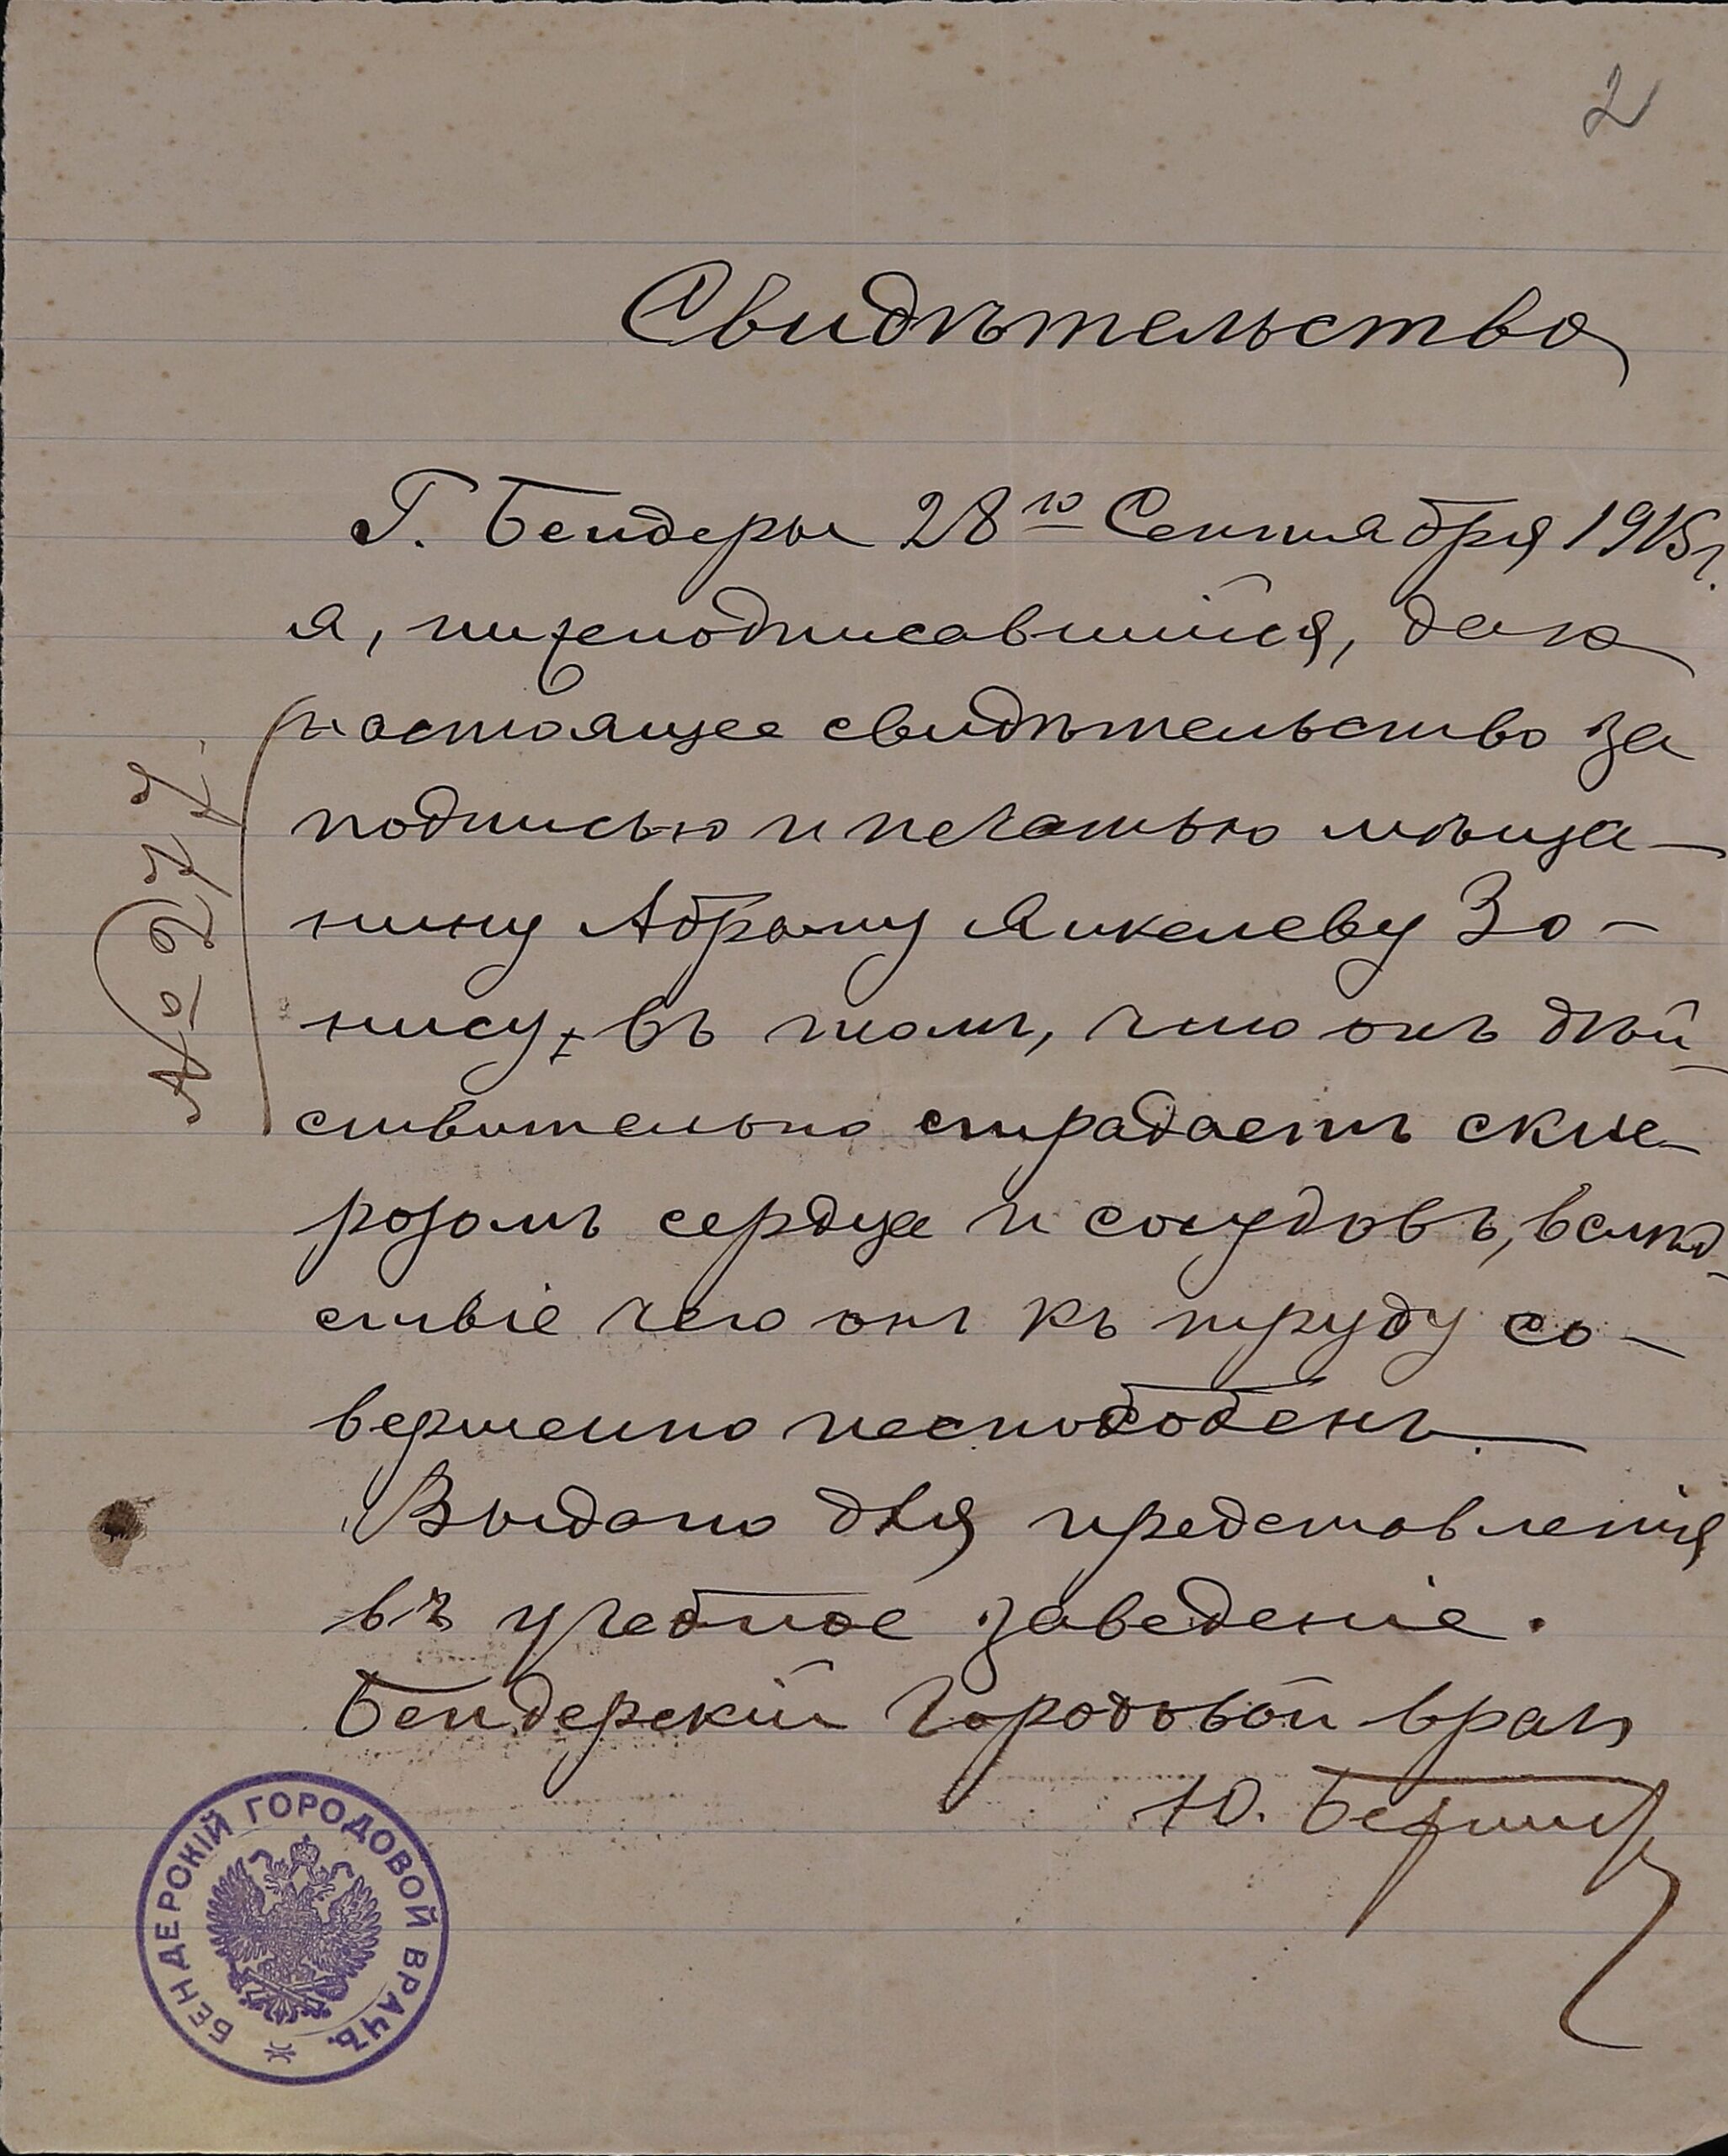 2
Свидѣтельство
Г. Бендеры 28го Сентября 1915 г.
я, нижеподписавшійся, даю
настоящее свидѣтельство за
подписью и печатью мѣща-
нину Абраму Янкелеву Зо-
нису, въ томъ, что онъ дѣй-
ствительно страдаетъ скле-
розомъ сердца и сосудовъ, вслѣд-
ствіе чего онъ къ труду со-
вершенно неспособенъ.
Выдано для представленія
въ учебное заведеніе.
Бендерскій Городовой врачъ
Ю.
№ 277.
БЕНДЕРСКІЙ ГОРОДОВОЙ ВРАЧЪ.